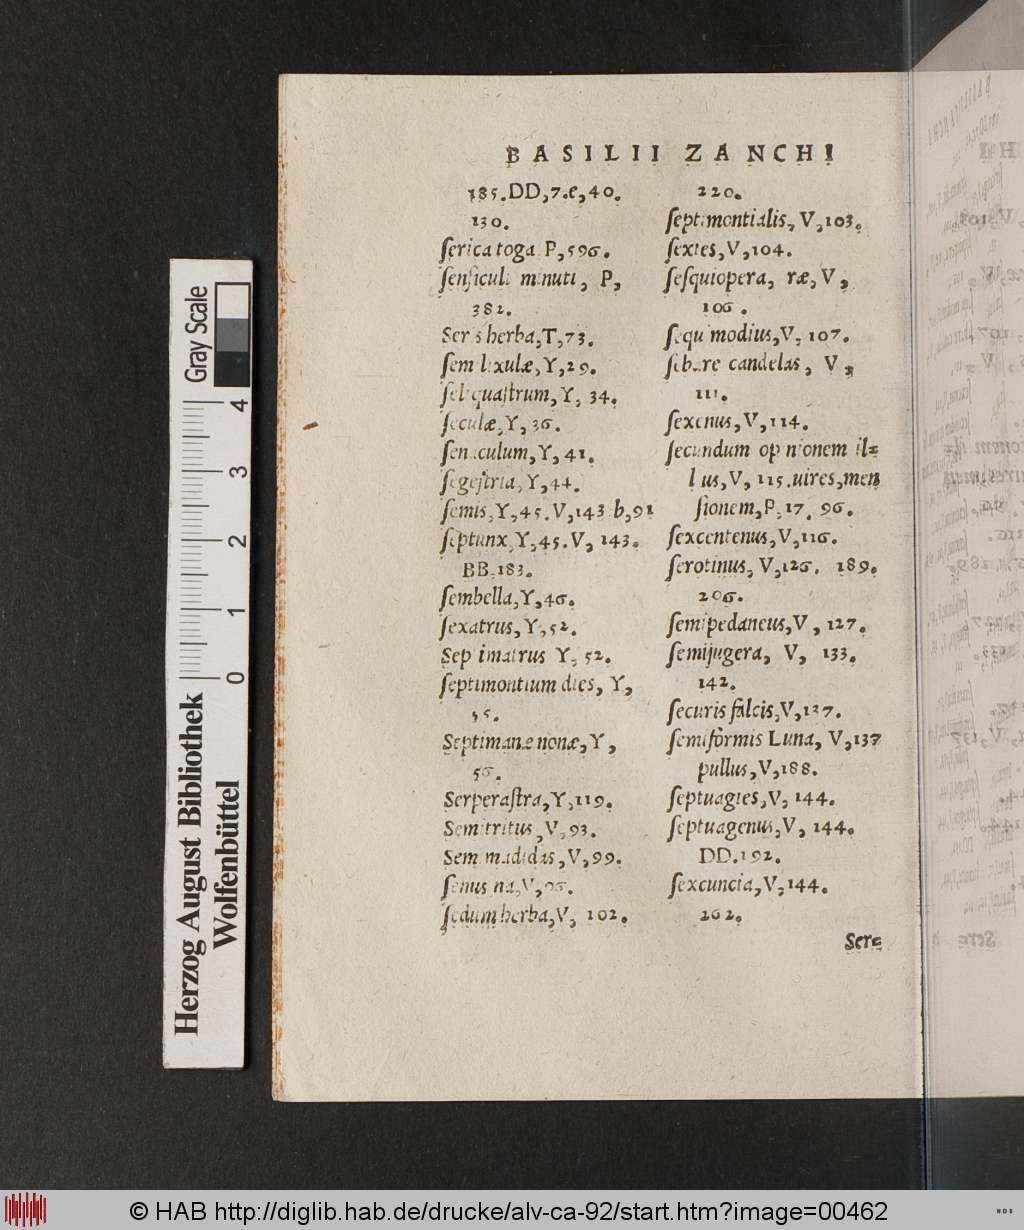 BASILII ZANCHI
185.DD,7.e,40.
130.
ſerica toga P,596.
ſenſiculi minuti, P,
382.
Ser s herba,T,73.
ſem lixulæ,Y,29.
ſel quaſtrum,Y, 34.
ſeculæ,Y,36.
ſenaculum,Y,41.
ſegeſtria,Y,44.
ſemis,Y,45.V,143 b,91
ſeptunx,Y,45.V, 143.
BB.183.
ſembella,Y,46.
ſexatrus,Y,52.
Sep imatrus Y, 52.
ſeptimontium dies, Y,
55.
Septimanæ nonæ,Y,
56.
Serperaſtra,Y,119.
Semitritus,V,93.
Sem madidas,V,99.
ſenus na,V,96.
ſedum herba,V, 102.
220.
ſeptimontialis,V,103.
ſexies,V,104.
ſeſquiopera, ræ,V,
106.
ſequ modius,V, 107.
ſebare candelas, V,
111.
ſexenus,V,114.
ſecundum op nionem il=
l us,V, 115.uires,men
ſionem,P,17. 96.
ſexcentenus,V,116.
ſerotinus, V,126. 189.
206.
ſemipedaneus,V, 127.
ſemijugera, V, 133.
142.
ſecuris falcis,V,137.
ſemiformis Luna, V,137
pullus,V,188.
ſeptuagies,V, 144.
ſeptuagenus,V, 144.
DD.192.
ſexcuncia,V,144.
262.
Sere=
Gray Scale
0 1 2 3 4
Herzog August Bibliothek
Wolfenbüttel
© HAB http://diglib.hab.de/drucke/alv-ca-92/start.htm?image=00462